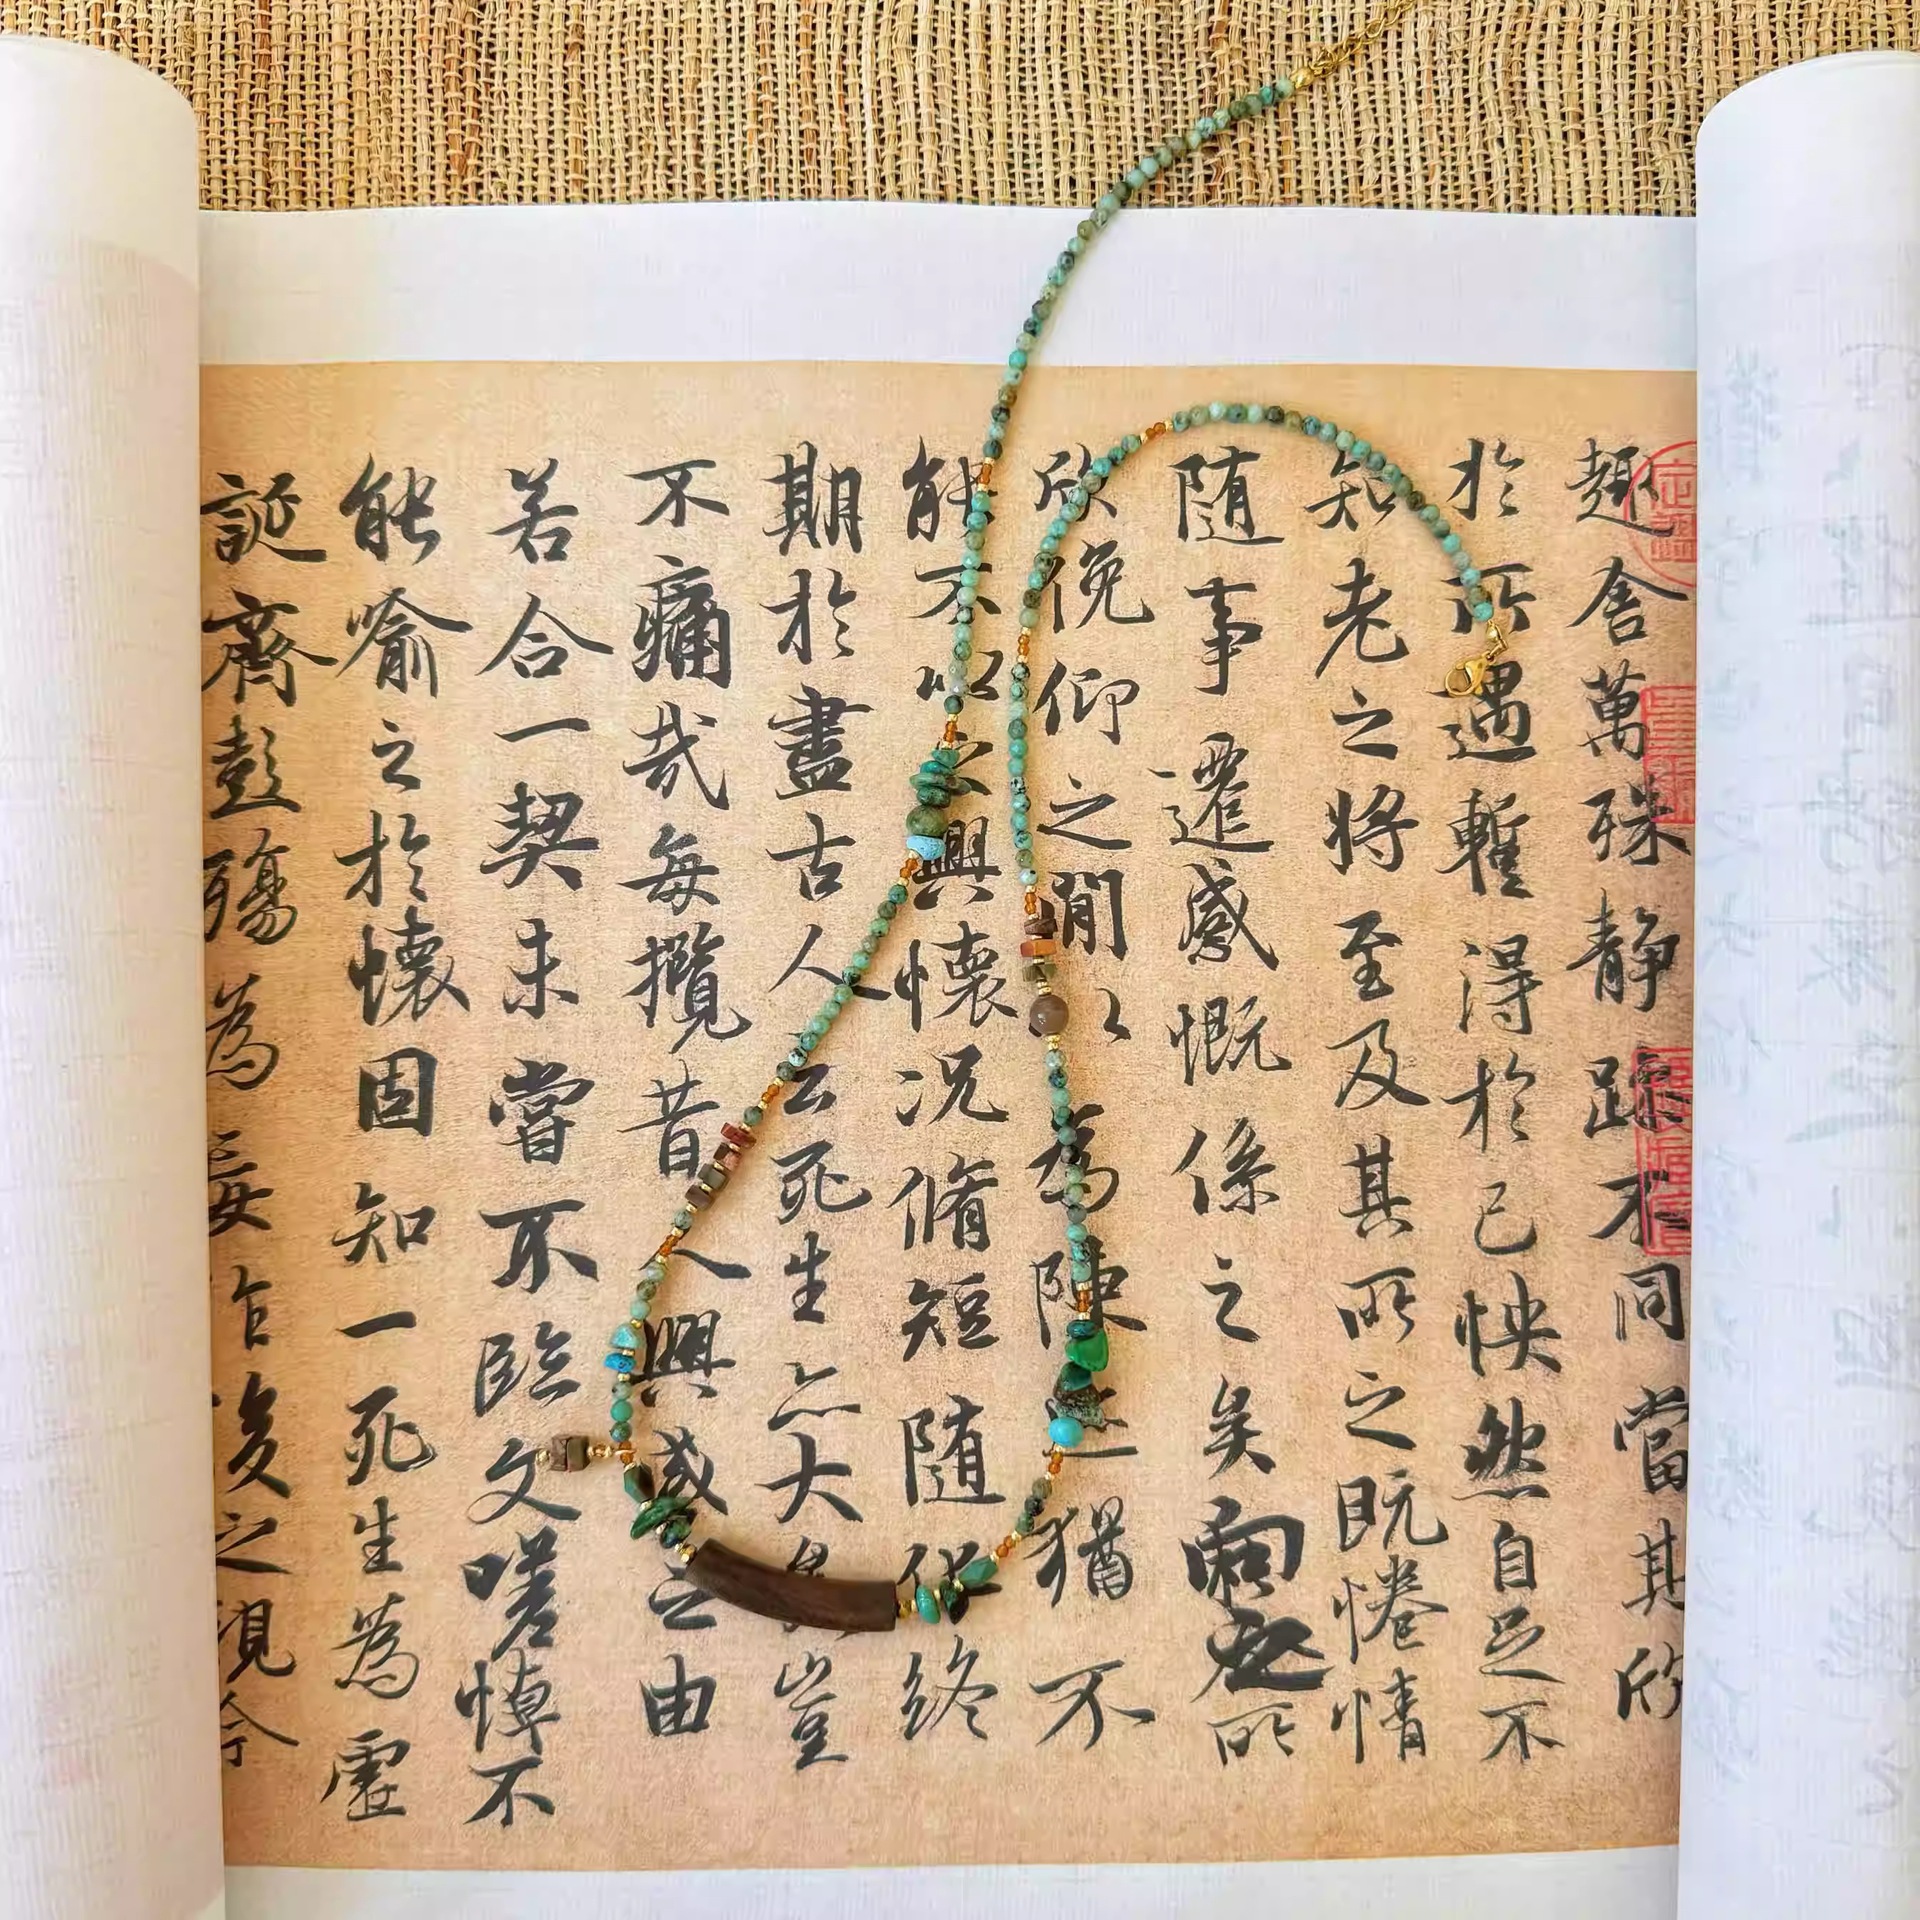 趣舍萬殊静躁不同當其欣
於所遇暫得於己怏然自足不
知老之將至及其所之既惓情
随事遷感慨係之矣向之所
欣俛仰之閒以為陳迹猶不
能不以之興懷况脩短随化終
期於盡古人云死生亦大矣豈
不痛哉每攬昔人興感之由
若合一契未嘗不臨文嗟悼不
能喻之於懷固知一死生為虚
誕齊彭殤為妄作後之視今